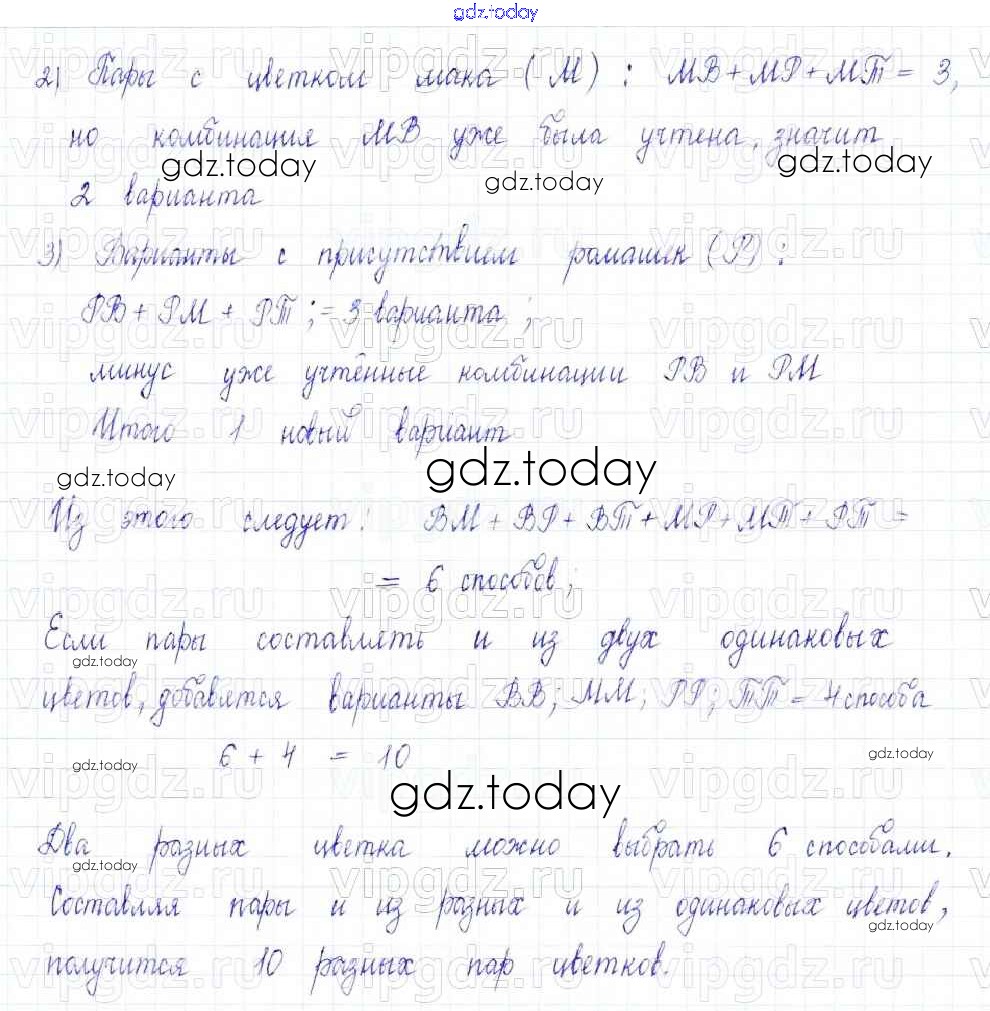 gdz.today
2) Пары с цветком мака (М) : МВ + МР + МТ = 3,
но комбинация МВ уже была учтена, значит
gdz.today gdz.today gdz.today
2 варианта
3) Варианты с присутствием ромашек (Р) :
РВ + РМ + РТ ; = 3 варианта ;
минус уже учтённые комбинации РВ и РМ
Итого 1 новый вариант
gdz.today gdz.today
Из этого следует: ВМ + ВР + ВТ + МР + МТ + РТ =
= 6 способов;
Если пары составлять и из двух одинаковых
gdz.today
цветов, добавятся варианты ВВ; ММ; РР; ТТ = 4 способа
6 + 4 = 10
gdz.today gdz.today
gdz.today
Два разных цветка можно выбрать 6 способами.
gdz.today
Составляя пары и из разных и из одинаковых цветов,
gdz.today
получится 10 разных пар цветков.